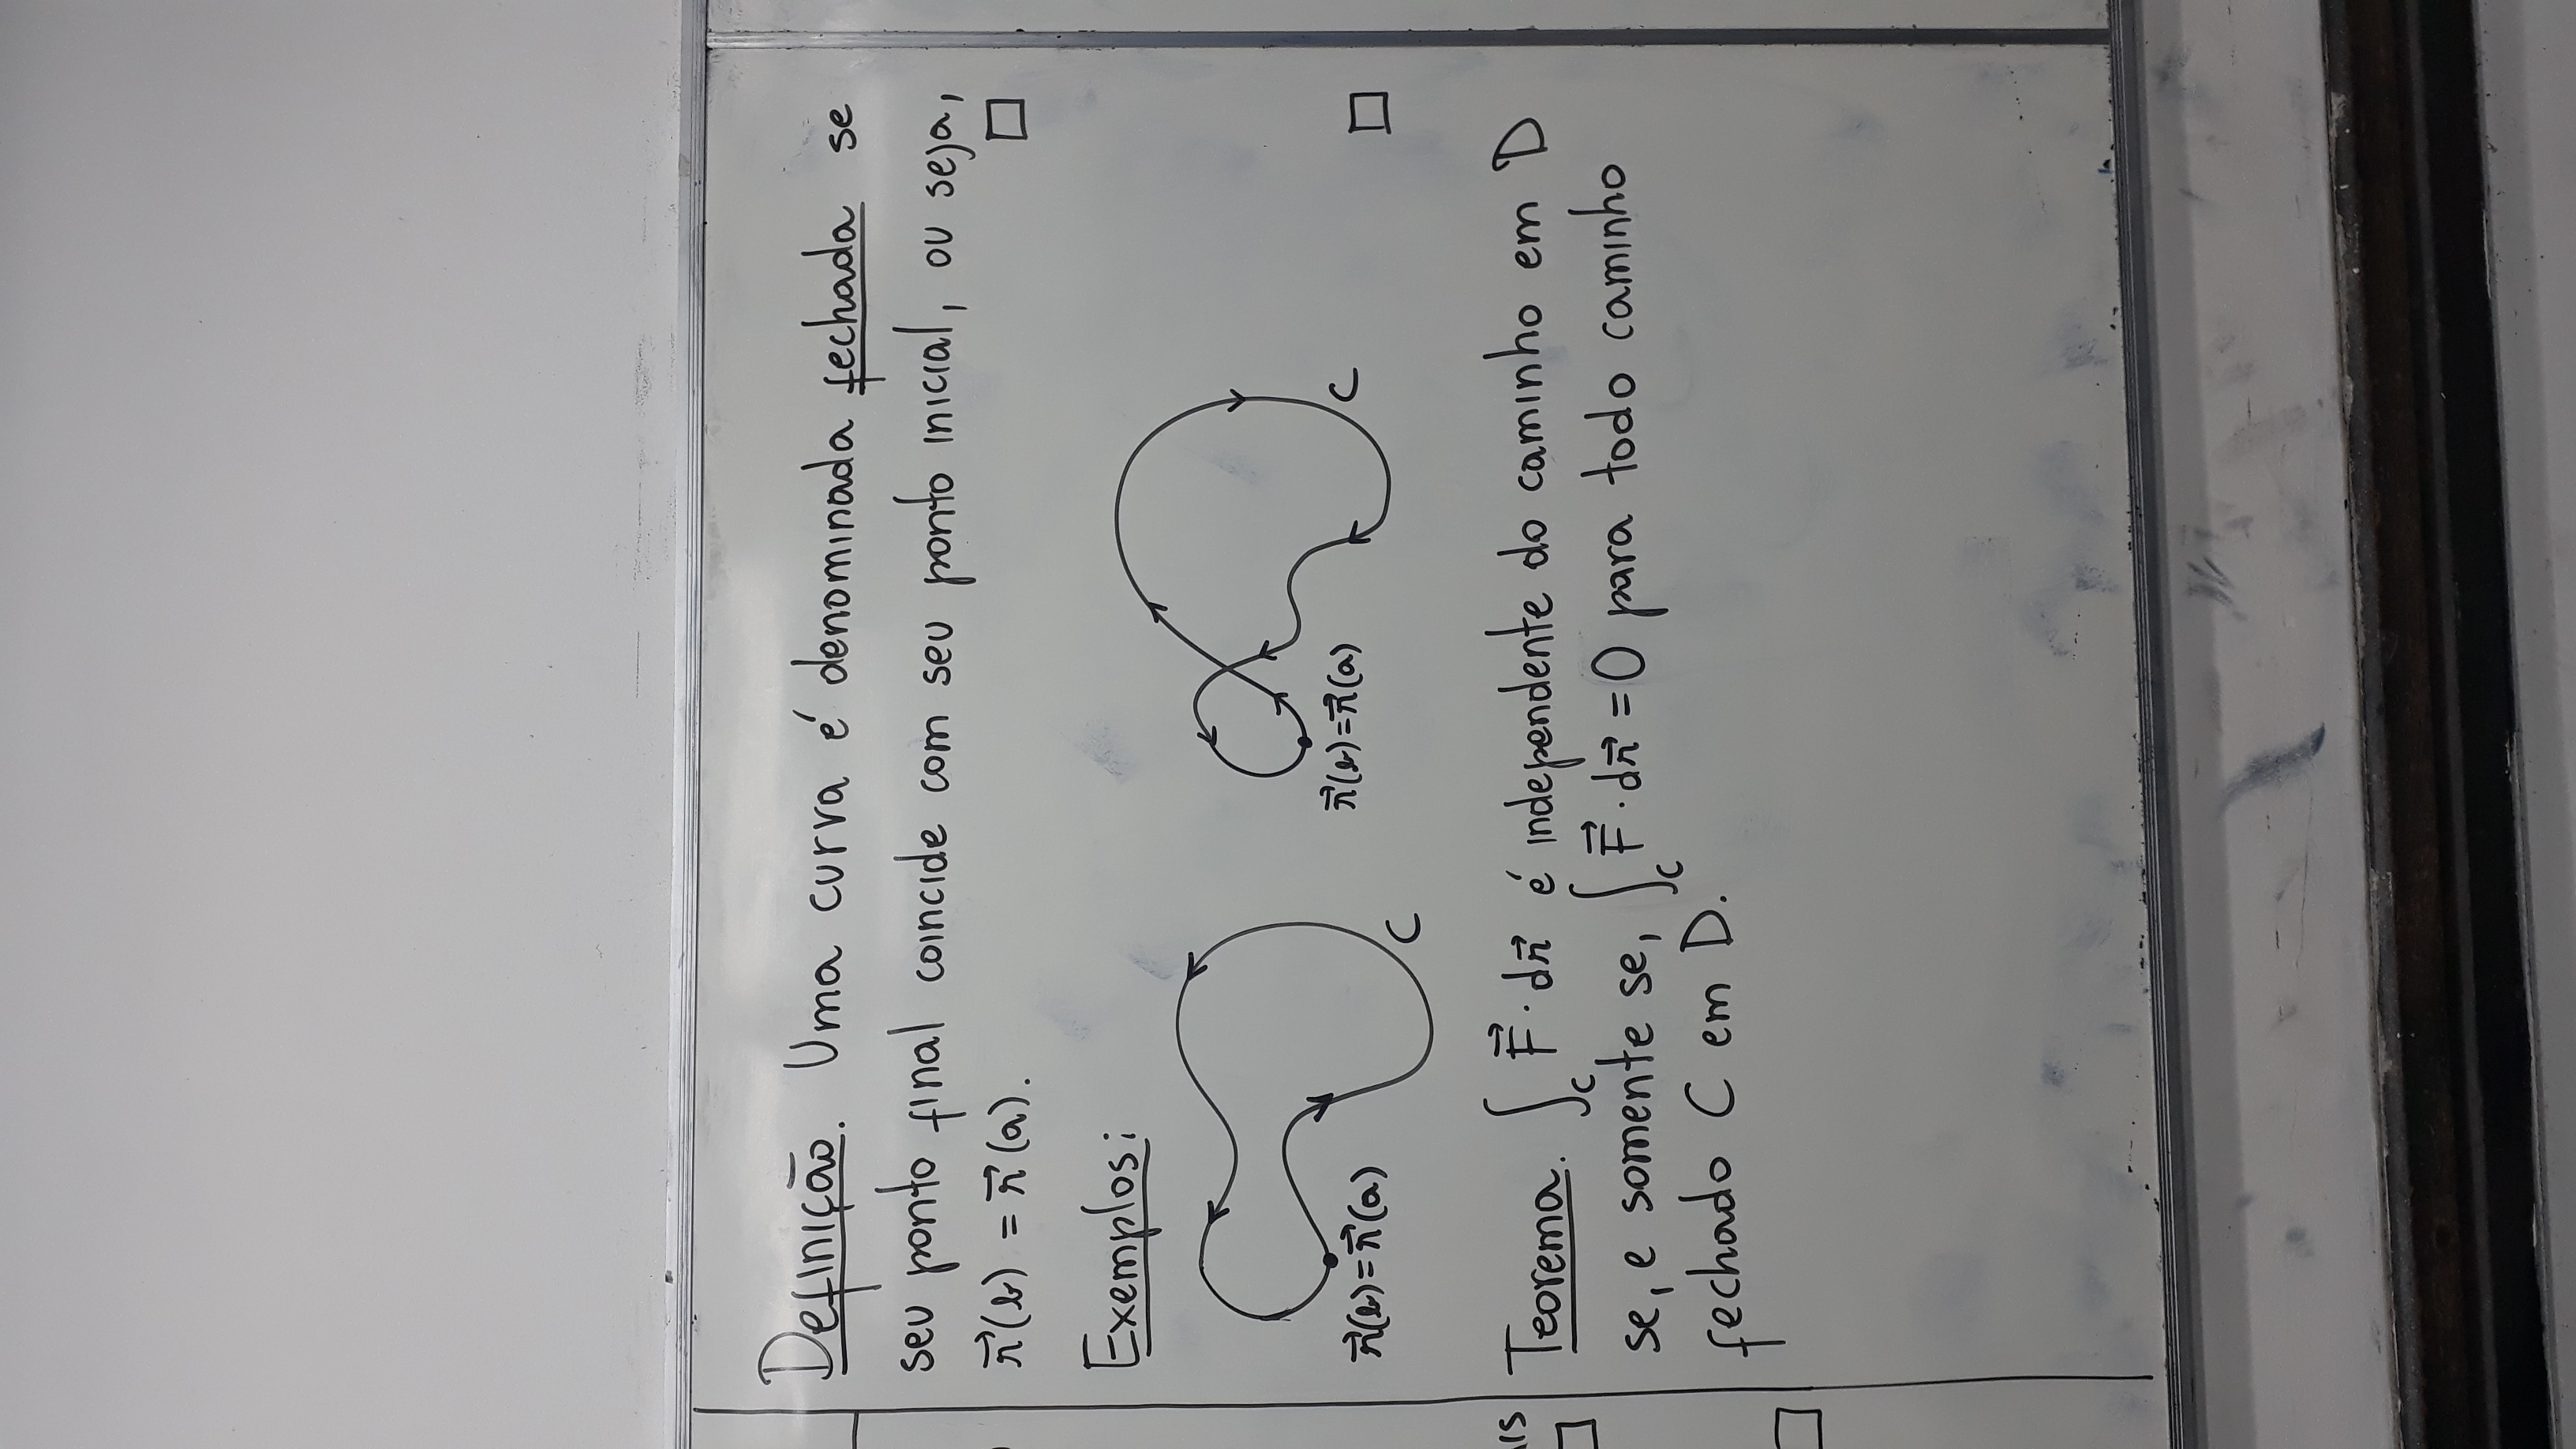 Definição. Uma curva é denominada fechada se
seu ponto final coincide com seu ponto inicial, ou seja,
r⃗(b) = r⃗(a). □
Exemplos:
r⃗(b)=r⃗(a) C
r⃗(b)=r⃗(a) C
□
Teorema. ∫_C F⃗·dr⃗ é independente do caminho em D
se, e somente se, ∫_C F⃗·dr⃗ = 0 para todo caminho
fechado C em D.